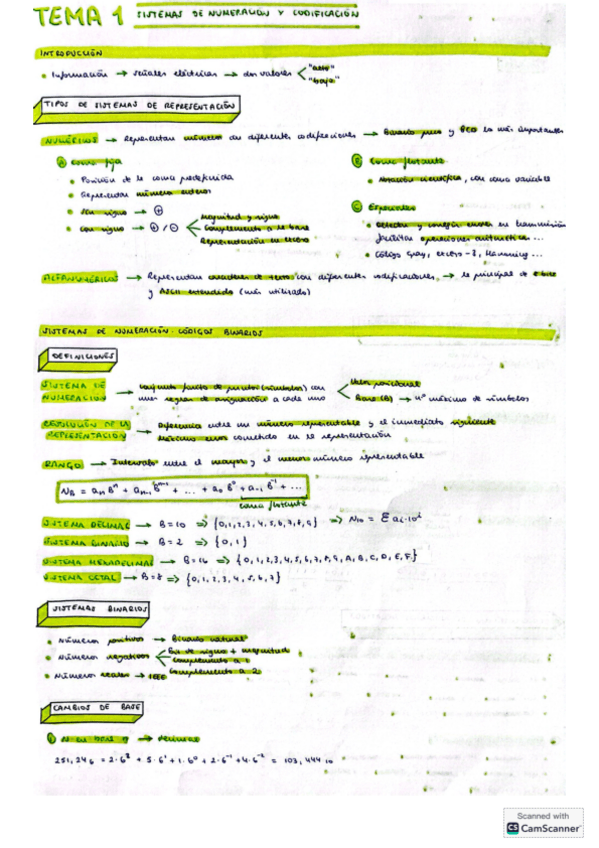 TEMA 1 SISTEMAS DE NUMERACIÓN Y CODIFICACIÓN
INTRODUCCIÓN
• Información → señales eléctricas → dos valores < "alto"
"bajo"
TIPOS DE SISTEMAS DE REPRESENTACIÓN
NUMÉRICOS → Representan números con diferentes codificaciones → Binario puro y BCD los más importantes
A Coma fija
• Posición de la coma predefinida
• Representar números enteros
• Sin signo → +
• Con signo → + / - < Magnitud y signo
Complemento a la base
Representación en exceso
B Coma flotante
• Notación científica, con coma variable
C Especiales
• Detectar y corregir errores en transmisión
facilitar operaciones aritméticas ...
• Código Gray, exceso-3, Hamming ...
ALFANUMÉRICOS → Representan caracteres de texto con diferentes codificaciones → la principal de 8 bits
y ASCII extendido (más utilizado)
SISTEMAS DE NUMERACIÓN. CÓDIGOS BINARIOS
DEFINICIONES
SISTEMA DE NUMERACIÓN → Conjunto finito de (símbolos) con
unas reglas de asignación a cada uno
< Valor posicional
Base (B) → nº máximo de símbolos
RESOLUCIÓN DE LA REPRESENTACIÓN → Diferencia entre un número representable y el inmediato siguiente
Máximo error cometido en la representación
RANGO → Intervalo entre el mayor y el menor número representable
N_B = a_n B^n + a_n-1 B^n-1 + ... + a_0 B^0 + a_-1 B^-1 + ...
coma flotante
SISTEMA DECIMAL → B = 10 ⇒ {0,1,2,3,4,5,6,7,8,9} ⇒ N_10 = Σ a_i·10^i
SISTEMA BINARIO → B = 2 ⇒ {0,1}
SISTEMA HEXADECIMAL → B = 16 ⇒ {0,1,2,3,4,5,6,7,8,9,A,B,C,D,E,F}
SISTEMA OCTAL → B = 8 ⇒ {0,1,2,3,4,5,6,7}
SISTEMAS BINARIOS
• Números positivos → Binario natural
• Números negativos < Bit de signo + magnitud
Complemento a 1
Complemento a 2
• Números reales → IEEE
CAMBIOS DE BASE
① N en base → decimal
251,24_6 = 2·6^2 + 5·6^1 + 1·6^0 + 2·6^-1 + 4·6^-2 = 103,444_10
Scanned with
CS CamScanner